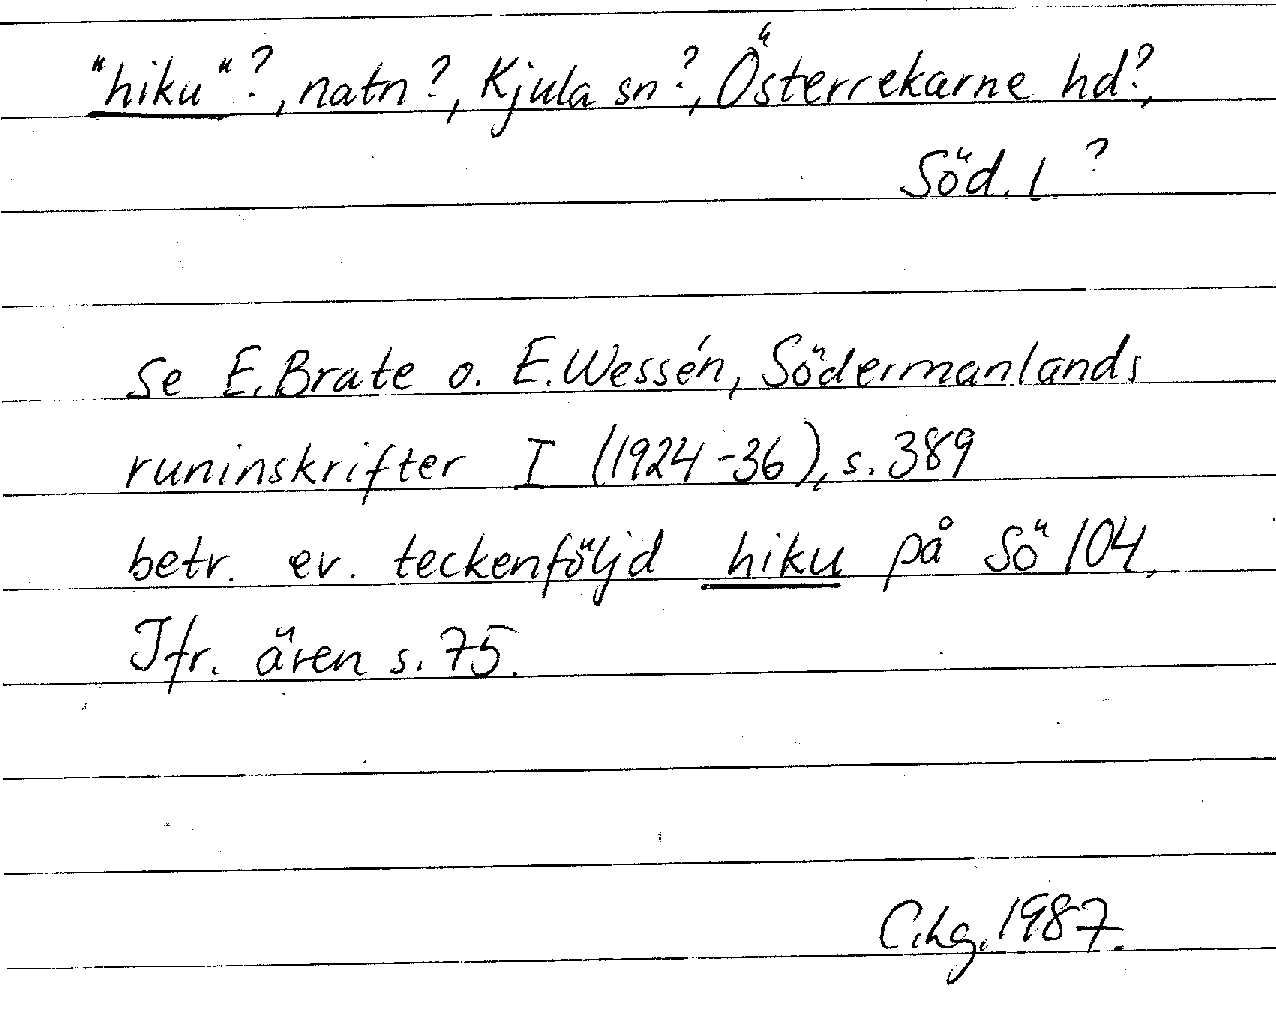 "hiku"?, natn?, Kjula sn?, Österrekarne hd?,
Söd. l. ?
Se E. Brate o. E. Wessén, Södermanlands
runinskrifter I (1924-36), s. 389
betr. ev. teckenföljd hiku på Sö 104.
Jfr. ären s. 75.
1987.